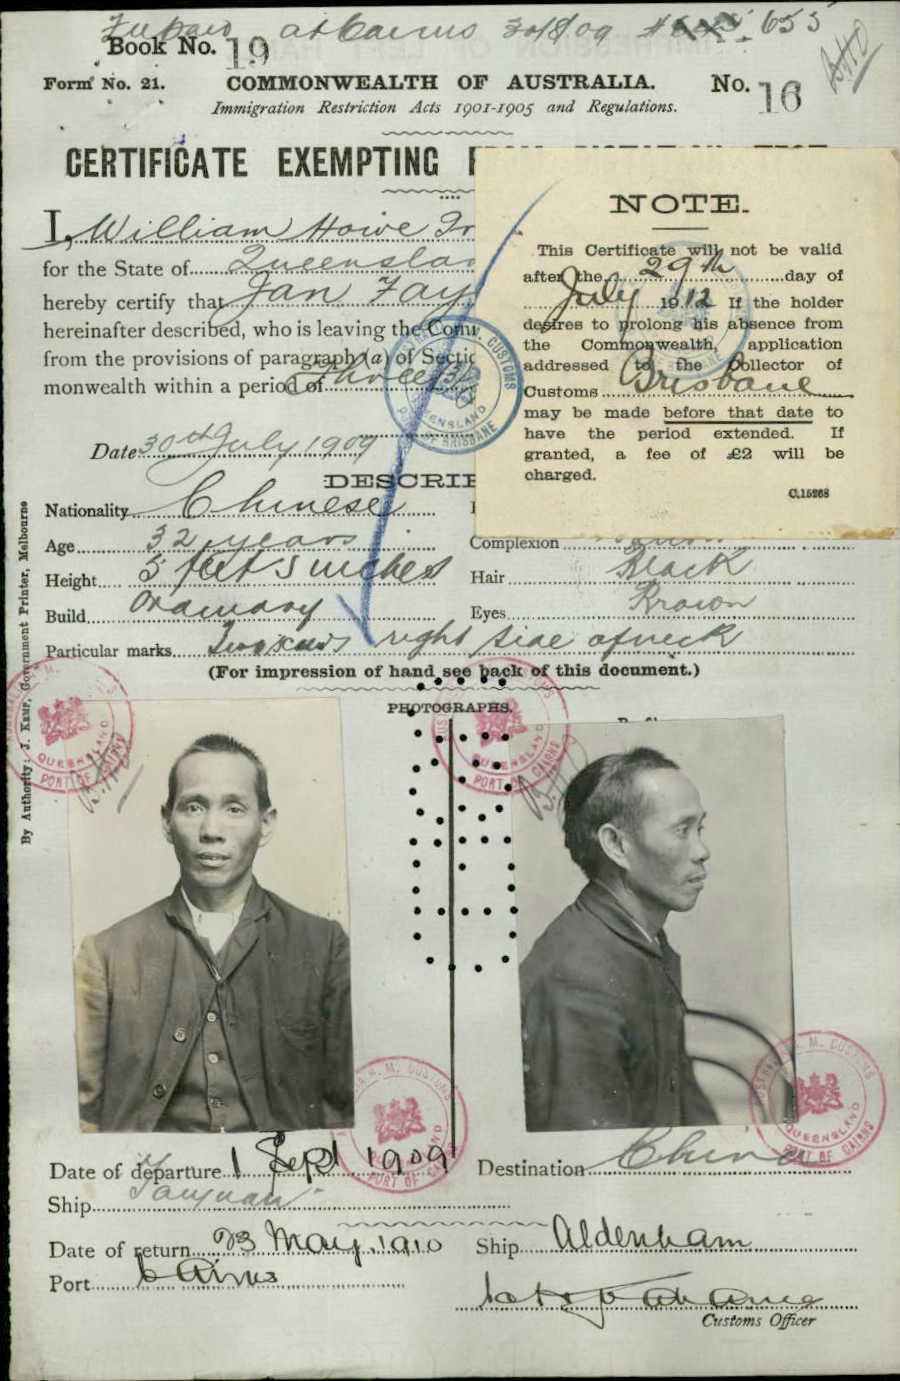 at Cairns 655
Book No. 19
Form No. 21. COMMONWEALTH OF AUSTRALIA. No. 16
Immigration Restriction Acts 1901-1905 and Regulations.
CERTIFICATE EXEMPTING
I, William Howe
for the State of
hereby certify that Jan Fay
hereinafter described, who is leaving the
from the provisions of paragraph (a) of
monwealth within a period of Three
Date 30th July 1909
NOTE.
This Certificate will not be valid
after the 29th day of
July 1912 If the holder
desires to prolong his absence from
the Commonwealth, application
addressed to the Collector of
Customs Brisbane
may be made before that date to
have the period extended. If
granted, a fee of £2 will be
charged.
C.15268
Nationality Chinese
Age 32 years
Complexion
Height 5 feet 5 inches
Hair Black
Build Ordinary
Eyes Brown
Particular marks right side of neck
(For impression of hand see back of this document.)
PHOTOGRAPHS.
By Authority: J. Kemp, Government Printer, Melbourne
QUEENSLAND
PORT OF CAIRNS
QUEENSLAND
PORT OF CAIRNS
H. M. CUSTOMS
QUEENSLAND
PORT OF BRISBANE
H. M. CUSTOMS
QUEENSLAND
PORT OF CAIRNS
H. M. CUSTOMS
QUEENSLAND
PORT OF CAIRNS
Date of departure 1 Sept 1909
Destination China
Ship Taiyuan
Date of return 23 May 1910 Ship Aldenham
Port Cairns
Customs Officer